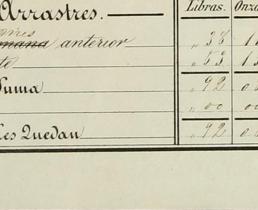 Arrastres. Libras. Onz
anterior " 38 1
te " 53 1
Suma " 92 0
" 00 0
Les Quedan " 92 0